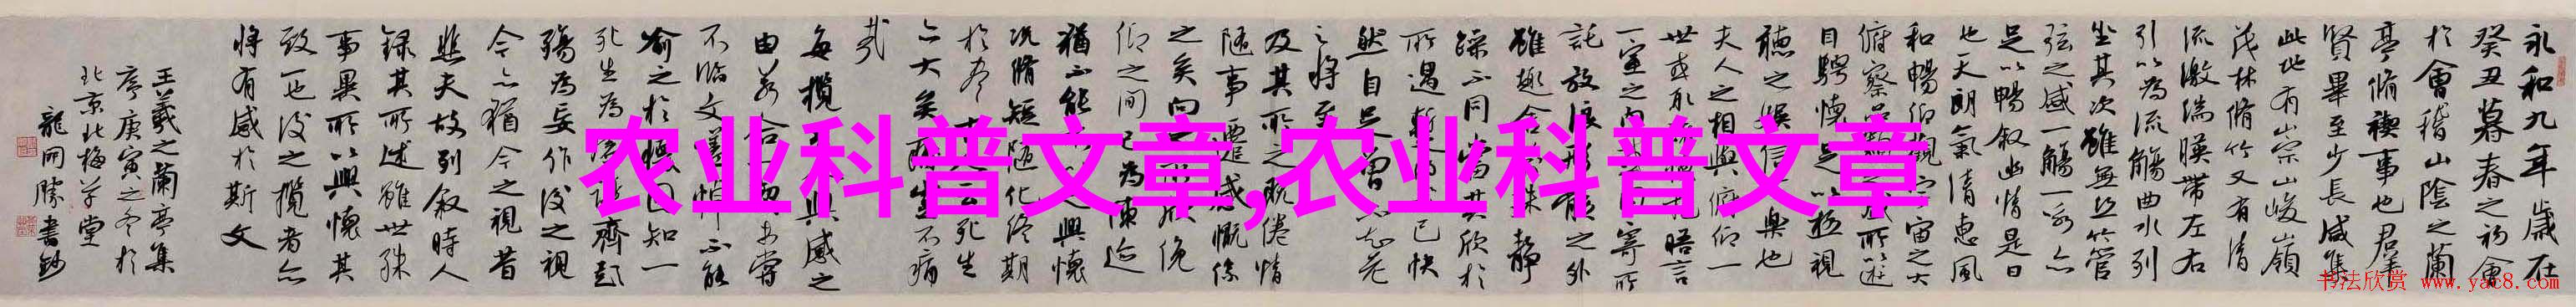 永和九年歲在
癸丑暮春之初會
於會稽山陰之蘭
亭脩禊事也群
賢畢至少長咸集
此地有崇山峻嶺
茂林脩竹又有清
流激湍暎帶左右
引以為流觴曲水列
坐其次雖無絲竹管
弦之盛一觴一詠亦
足以暢敘幽情是日
也天朗氣清惠風
和暢仰觀宇宙之大
俯察品類之盛所以遊
目騁懷足以極視
聽之娛信樂也
夫人之相與俯仰一
世或取懷抱悟言
一室之內寄所
託放浪形骸之外
雖趣舍殊靜
躁不同當其欣於
所遇暫已快
然自足曾不知老
之將至
及其所之既倦情
隨事遷感慨係
之矣向之俛
仰之間已為陳迹
猶不能興懷
況脩短隨化終期
於盡古人云死生
亦大矣豈不痛
哉
每攬昔人興感之
由若合一契未嘗
不臨文嗟悼不能
喻之於懷固知一
死生為虛誕齊彭
殤為妄作後之視
今亦猶今之視昔
悲夫故列敘時人
錄其所述雖世殊
事異所以興懷其
致一也後之攬者亦
將有感於斯文
王羲之蘭亭集
序庚寅之冬於
北京北梅草堂
龍開勝書鈔
农业科普文章,农业科普文章
书法欣赏 www.yac8.com